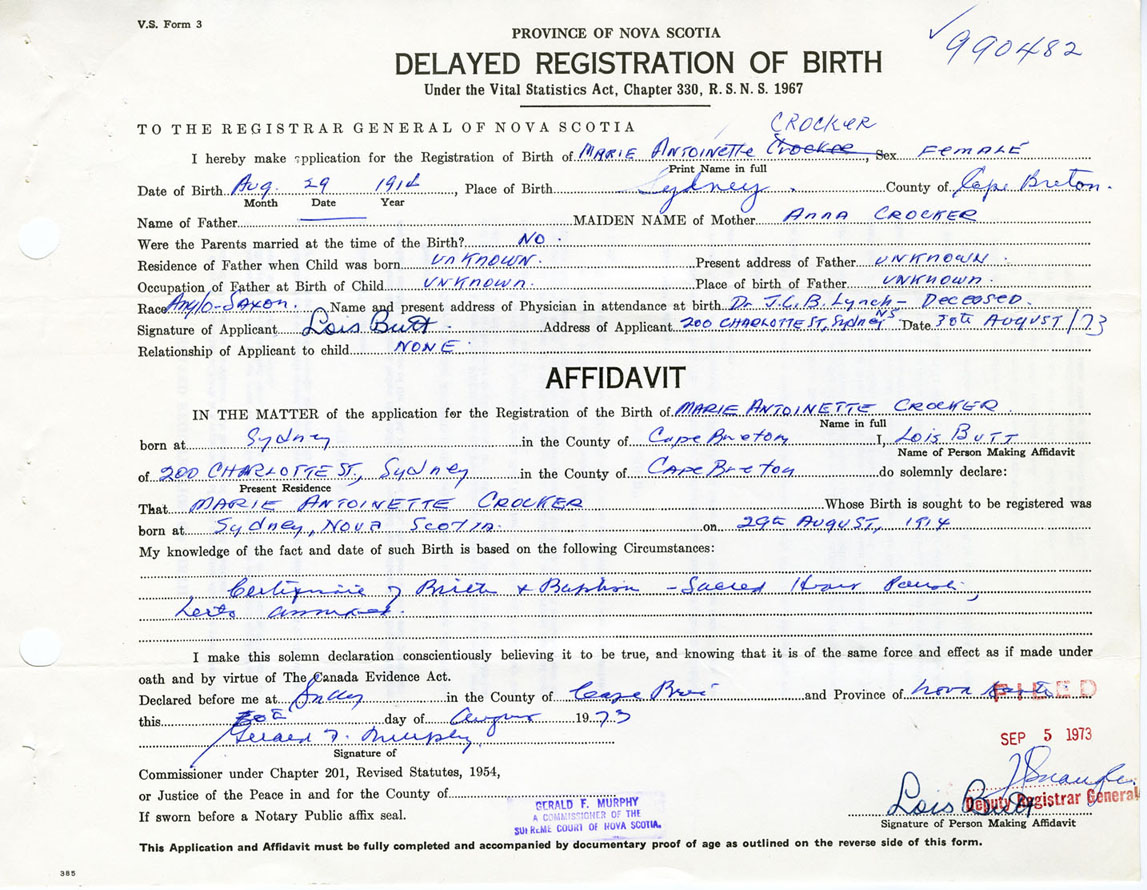 V.S. Form 3
990482
PROVINCE OF NOVA SCOTIA
DELAYED REGISTRATION OF BIRTH
Under the Vital Statistics Act, Chapter 330, R. S. N. S. 1967
TO THE REGISTRAR GENERAL OF NOVA SCOTIA
CROCKER
I hereby make application for the Registration of Birth of MARIE ANTOINETTE Crocker, Sex FEMALE
Print Name in full
Date of Birth Aug. 29 1914, Place of Birth Sydney. County of Cape Breton.
Month Date Year
Name of Father MAIDEN NAME of Mother ANNA CROCKER
Were the Parents married at the time of the Birth? NO.
Residence of Father when Child was born UNKNOWN. Present address of Father UNKNOWN.
Occupation of Father at Birth of Child UNKNOWN. Place of birth of Father UNKNOWN.
Race Anglo-Saxon. Name and present address of Physician in attendance at birth Dr J.G.B. Lynch - DECEASED.
Signature of Applicant Lois Butt. Address of Applicant 200 CHARLOTTE ST, Sydney NS Date 30th AUGUST/73
Relationship of Applicant to child NONE.
AFFIDAVIT
IN THE MATTER of the application for the Registration of the Birth of MARIE ANTOINETTE CROCKER
Name in full
born at Sydney in the County of Cape Breton I, LOIS BUTT
Name of Person Making Affidavit
of 200 CHARLOTTE ST., Sydney in the County of CAPE BRETON do solemnly declare:
Present Residence
That MARIE ANTOINETTE CROCKER Whose Birth is sought to be registered was
born at Sydney, NOVA SCOTIA on 29th AUGUST, 1914
My knowledge of the fact and date of such Birth is based on the following Circumstances:
Certificate of Birth & Baptism - Sacred Heart Parish,
annexed.
I make this solemn declaration conscientiously believing it to be true, and knowing that it is of the same force and effect as if made under
oath and by virtue of The Canada Evidence Act.
Declared before me at Sydney in the County of Cape Bret and Province of Nova Scotia
FILED
this 30th day of August 1973
Gerald F. Murphy
SEP 5 1973
Signature of
Commissioner under Chapter 201, Revised Statutes, 1954,
or Justice of the Peace in and for the County of
If sworn before a Notary Public affix seal.
GERALD F. MURPHY
A COMMISSIONER OF THE
SUPREME COURT OF NOVA SCOTIA.
Lois Butt
Deputy Registrar General
Signature of Person Making Affidavit
This Application and Affidavit must be fully completed and accompanied by documentary proof of age as outlined on the reverse side of this form.
385